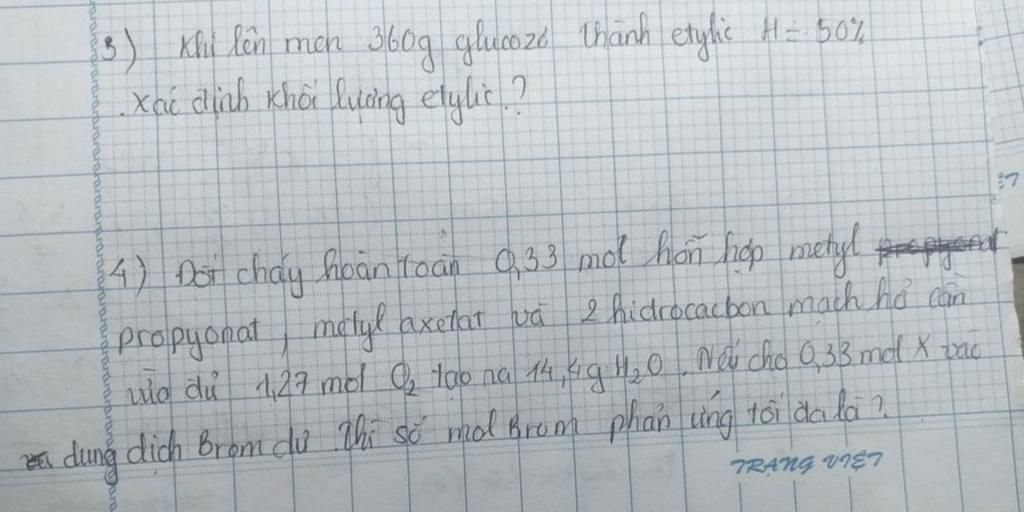 3) Khi lên men 360g glucozơ thành etylic H = 50%
. xác định khối lượng etylic.?
4) Đốt cháy hoàn toàn 0,33 mol hỗn hợp metyl
propyonat, metyl axetat và 2 hidrocacbon mạch hở cần
vừa đủ 1,27 mol O2 tạo ra 14,4g H2O. Nếu cho 0,33 mol X vào
dung dịch Brom dư thì số mol Brom phản ứng tối đa là?
TRANG VIET